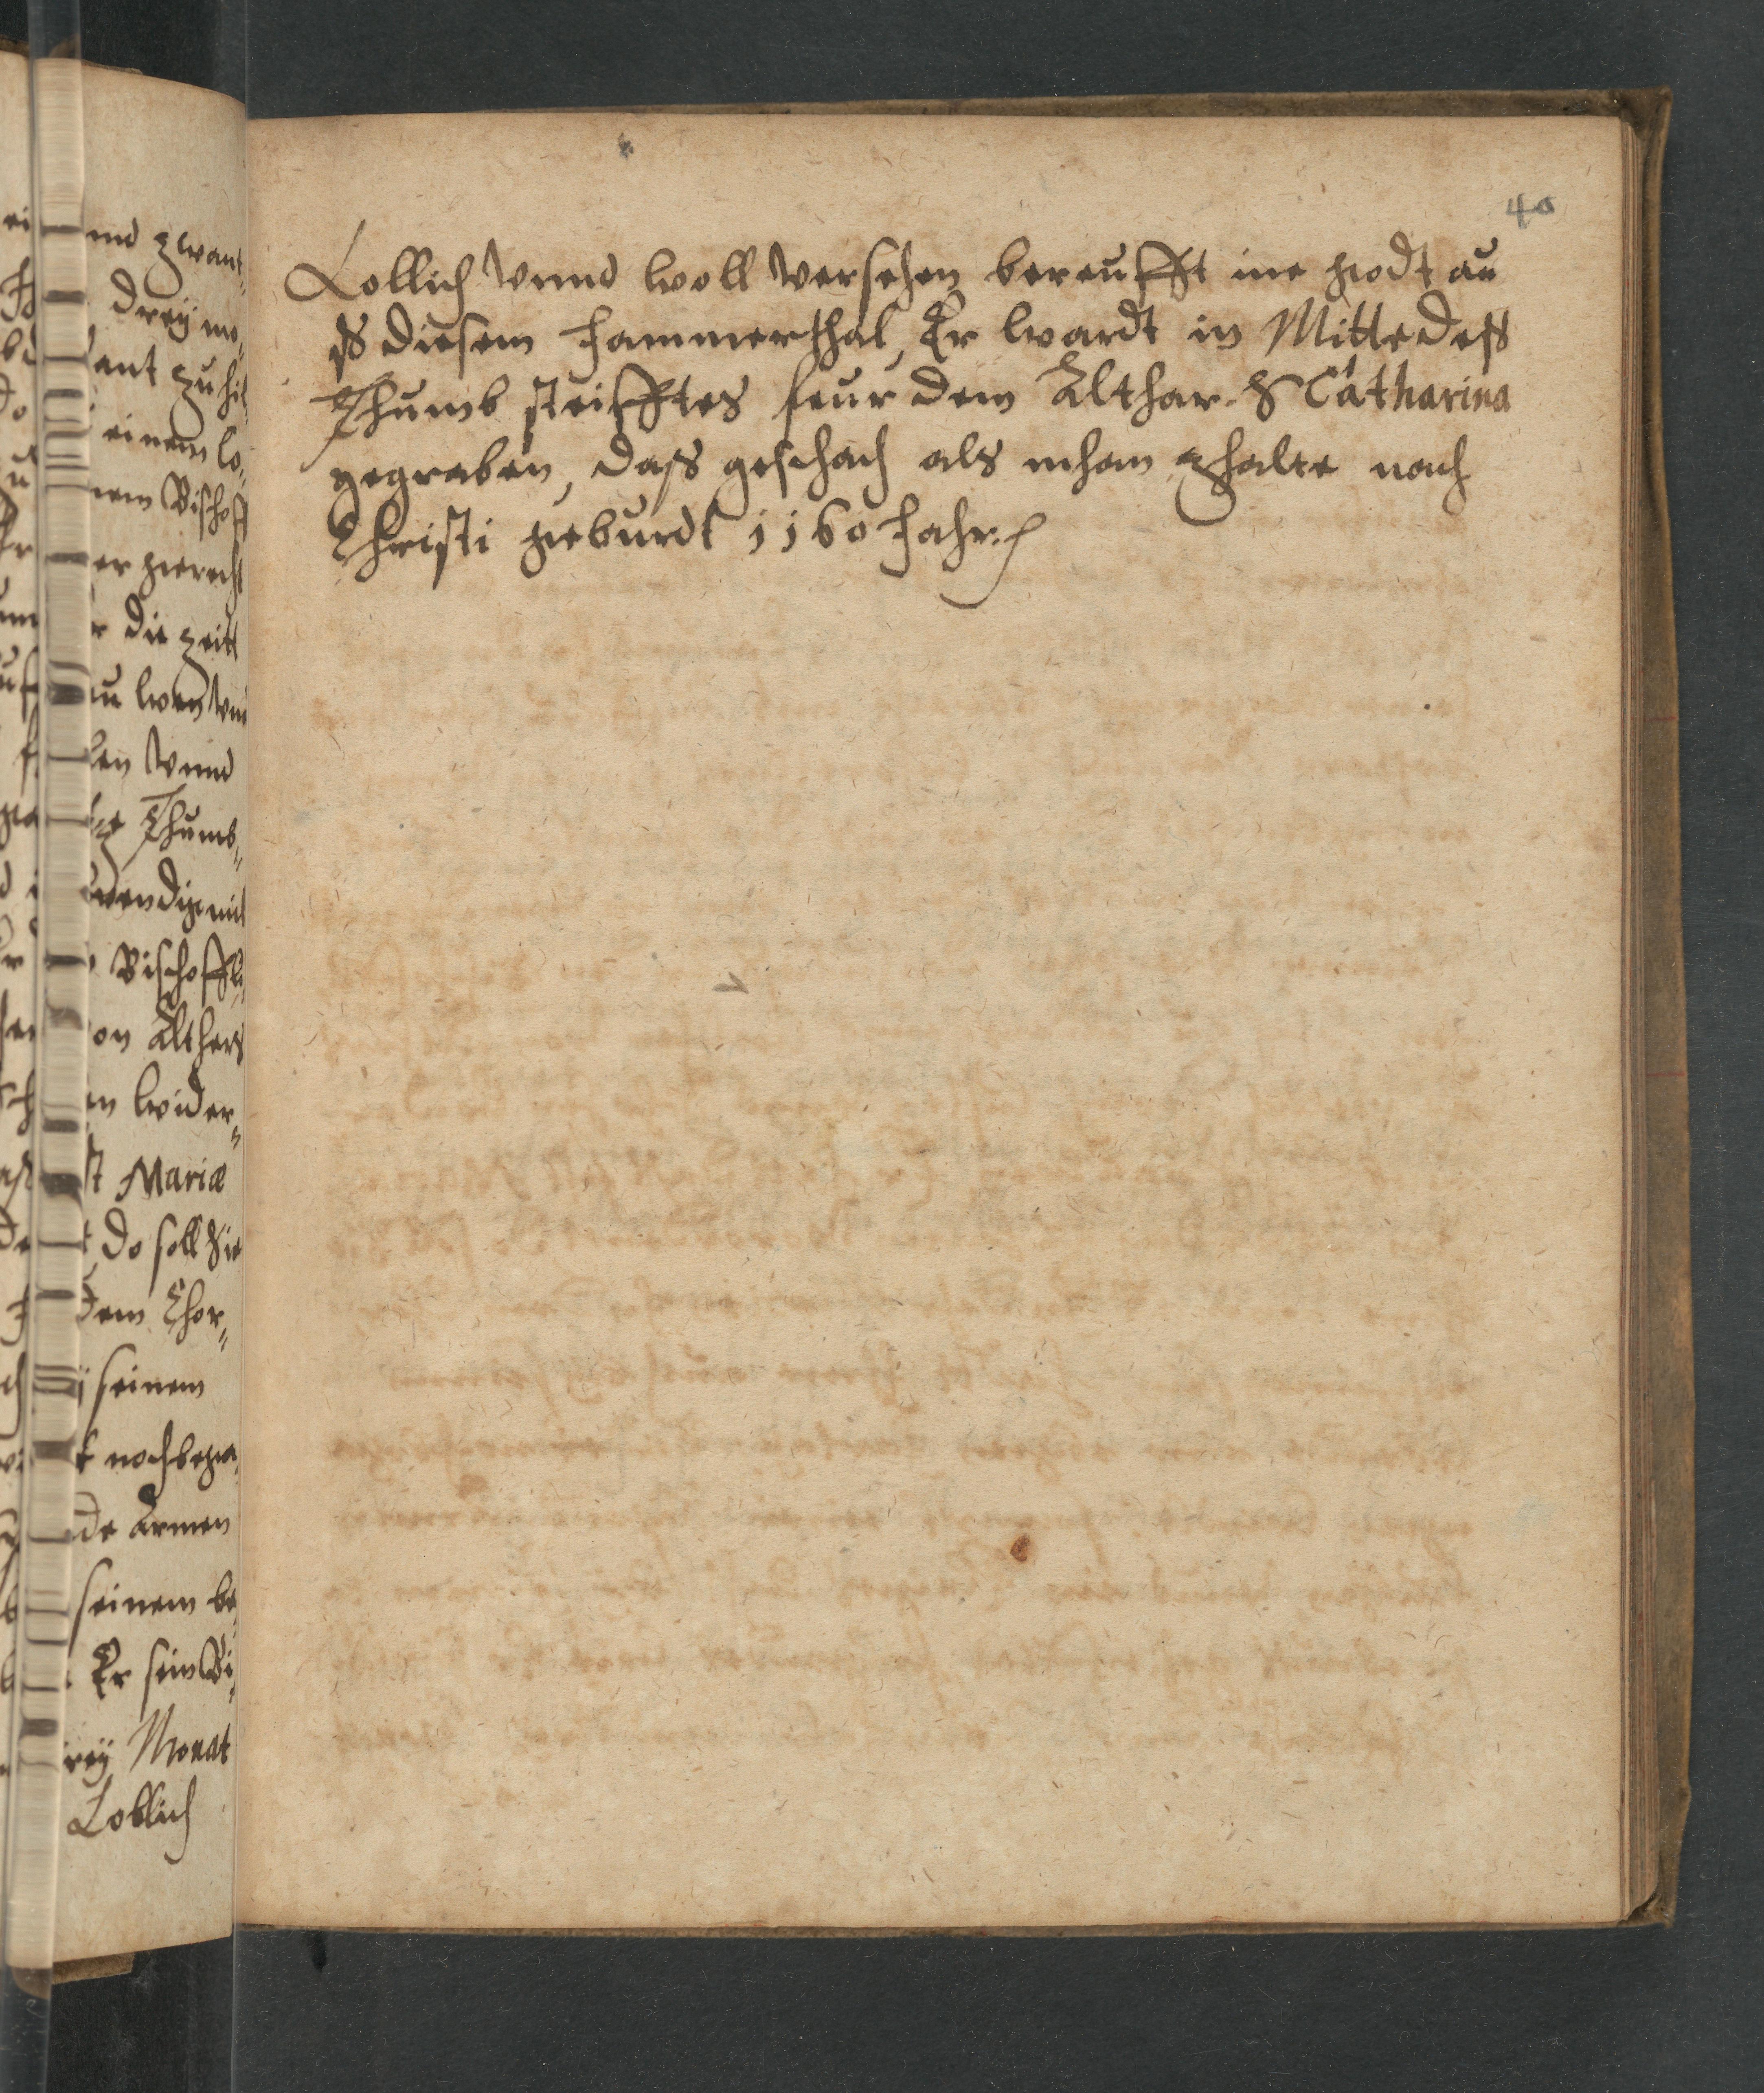 40
Lollich Vnnd woll Versehen bereufft ine Godt au
ß diesem Jammerthal, Er wardt in Mitte deß
Thumb steifftes feur dem Althar. S Catharina
gegraben, daß geschach als mhan Zhalte nach
Christi geburdt 1160 Jahr.
nd zwant
drey mo
ant zu hil
einem lo
nem Bischof
er gerecht
die zeitt
en Vnnd
Thumb
wendig mit
Bischoffl
on Althers
en wider
st Mariæ
do soll Sie
dem Chor
seinem
noch bega
de Armen
seinem be
Er sein Bi
rey Monat
Loblich